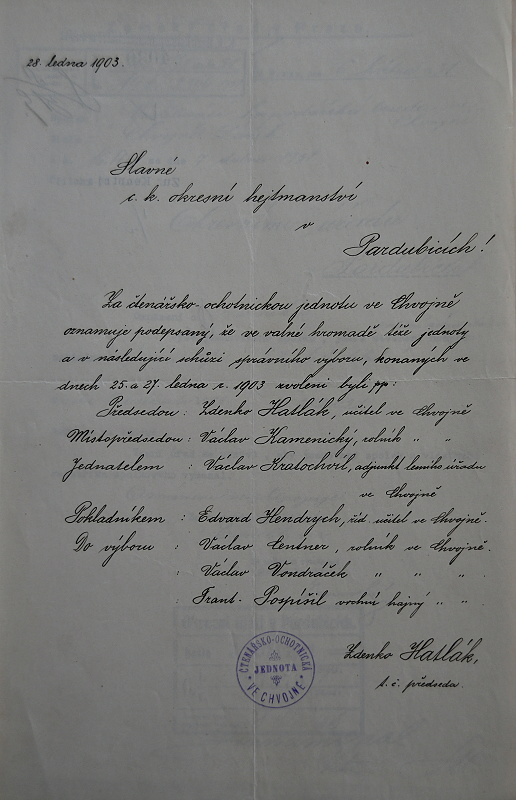 28. ledna 1903.
Slavné
c. k. okresní hejtmanství
v
Pardubicích!
Za čtenářsko-ochotnickou jednotu ve Chvojně
oznamuje podepsaný, že ve valné hromadě téže jednoty
a v následující schůzi správního výboru, konaných ve
dnech 25. a 27. ledna r. 1903 zvoleni byli pp:
Předsedou : Zdenko Hatlák, učitel ve Chvojně
Místopředsedou : Václav Kamenický, rolník " "
Jednatelem : Václav Kratochvíl, adjunkt lesního úřadu
ve Chvojně
Pokladníkem : Edvard Hendrych, říd. učitel ve Chvojně.
Do výboru : Václav Centner, rolník ve Chvojně.
: Václav Vondráček " " "
: Frant. Pospíšil vrchní hajný " "
Zdenko Hatlák,
t. č. předseda.
ČTENÁŘSKO-OCHOTNICKÁ
JEDNOTA
VE CHVOJNĚ